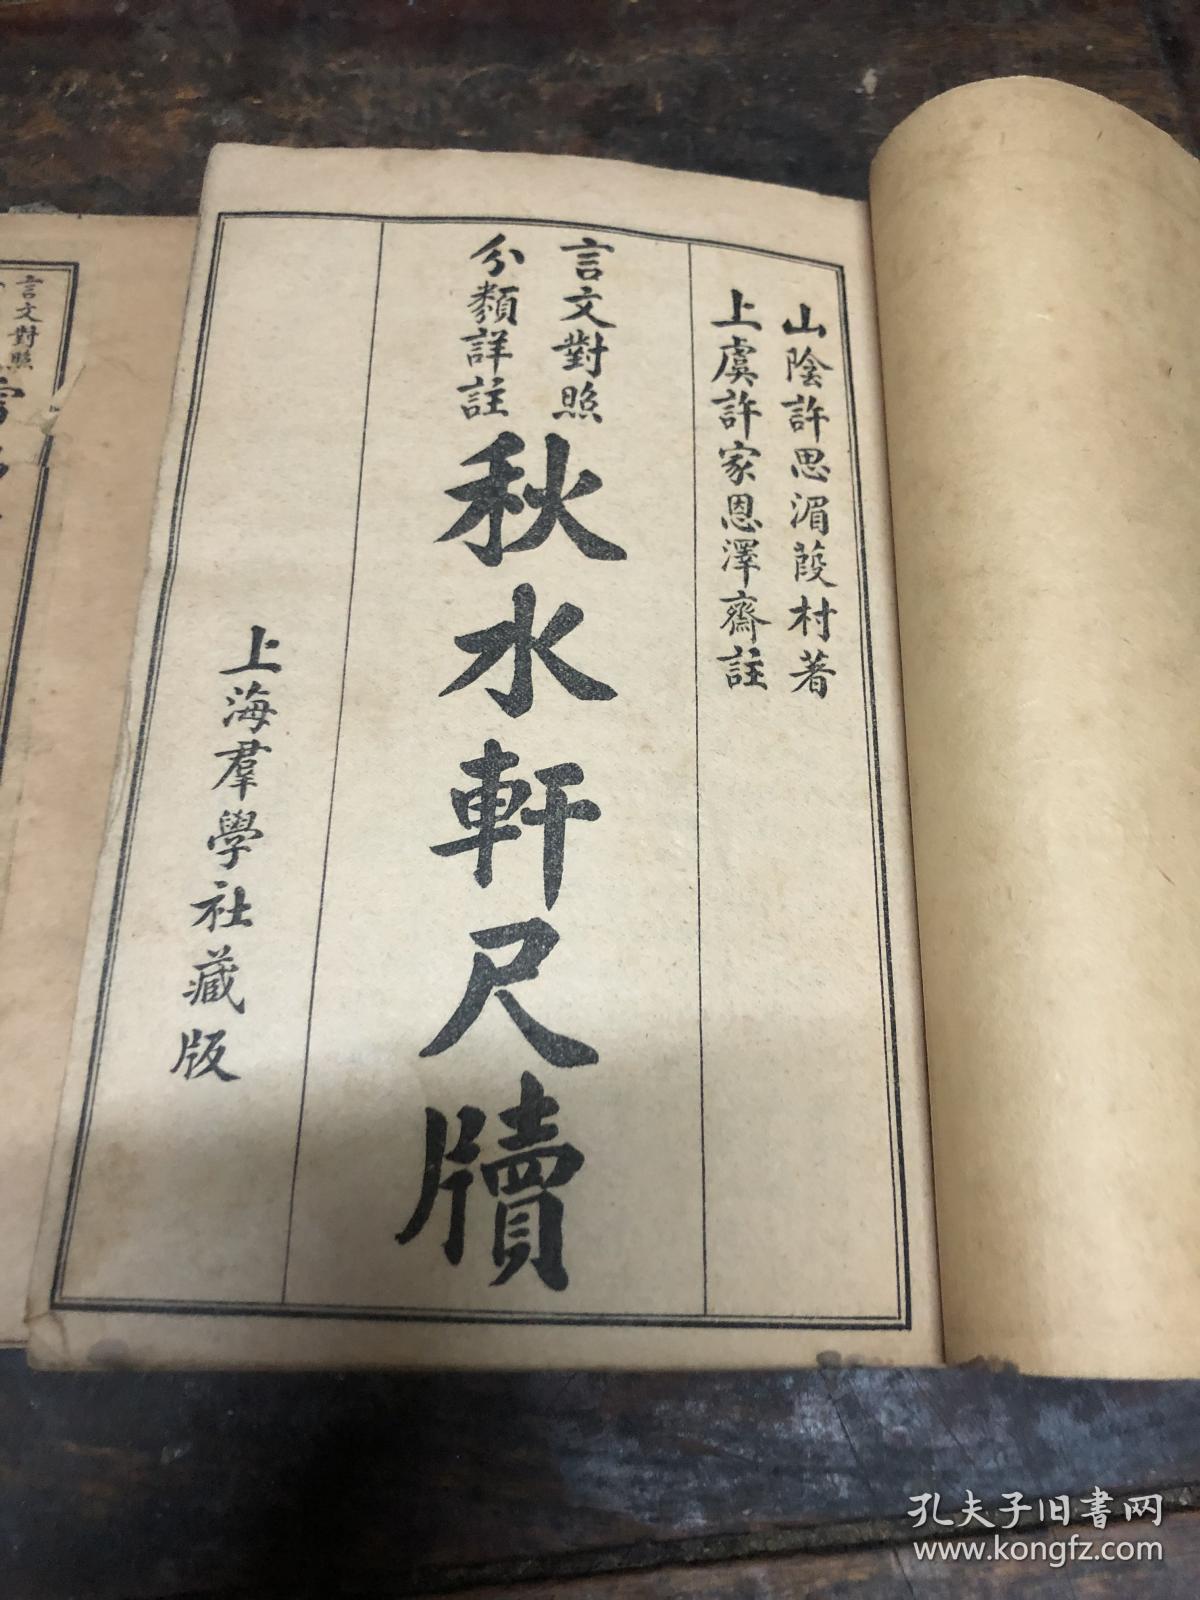 山陰許思湄葭村著
上虞許家恩澤齋註
言文對照
分類詳註
秋水軒尺牘
上海羣學社藏版
言文對照
孔夫子旧書网
www.kongfz.com